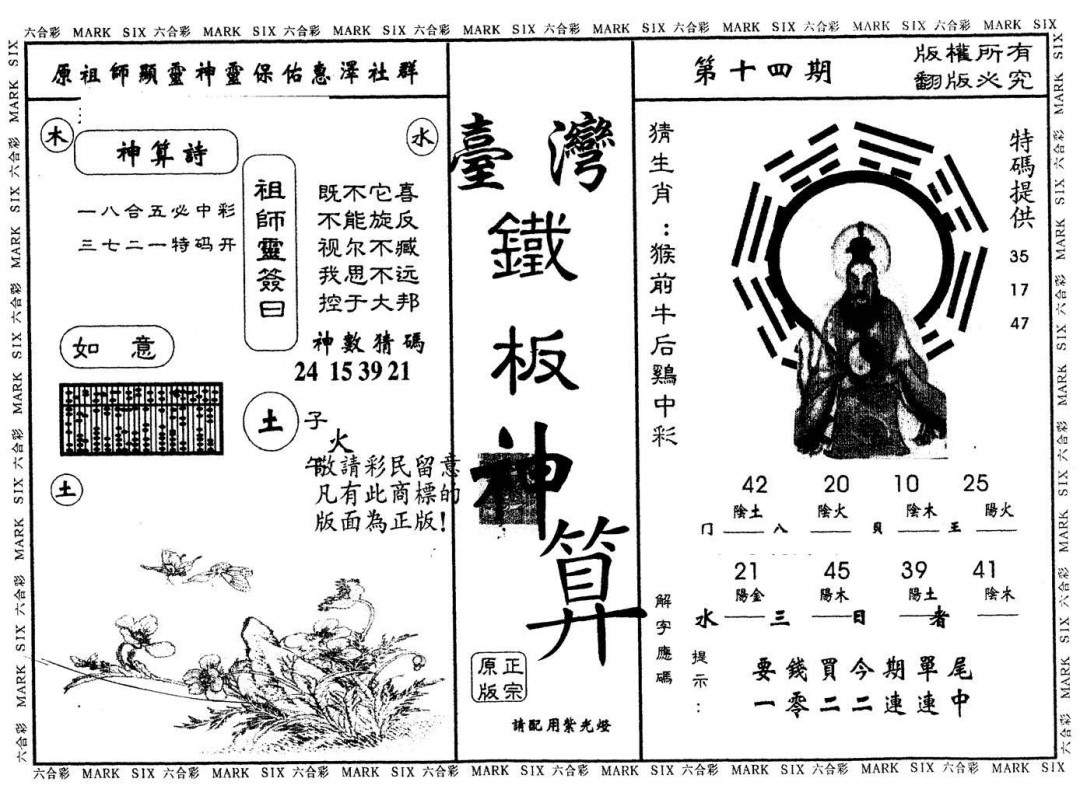 六合彩 MARK SIX 六合彩 MARK SIX 六合彩 MARK SIX 六合彩 MARK SIX 六合彩 MARK SIX 六合彩 MARK SIX 六合彩 MARK SIX 六合彩 MARK SIX
原祖師顯靈神靈保佑惠澤社群
木
水
神算詩
一八合五必中彩
三七二一特码开
祖師靈簽曰
既不它喜
不能旋反
视尔不臧
我思不远
控于大邦
神數猜碼
24 15 39 21
如意
土
子
火
午
土
敬請彩民留意
凡有此商標的
版面為正版!
臺灣
鐵
板
神
算
正宗
原版
請配用紫光燈
第十四期
版權所有
翻版必究
猜生肖:猴前牛后鷄中彩
特碼提供
35
17
47
42 20 10 25
陰土 陰火 陰木 陽火
门 八 貝 王
21 45 39 41
陽金 陽木 陽土 陰水
水 三 日 者
解字應碼
提示:
要錢買今期單尾
一零二二連連中
六合彩 MARK SIX 六合彩 MARK SIX 六合彩 MARK SIX 六合彩 MARK SIX 六合彩 MARK SIX 六合彩 MARK SIX 六合彩 MARK SIX 六合彩 MARK SIX